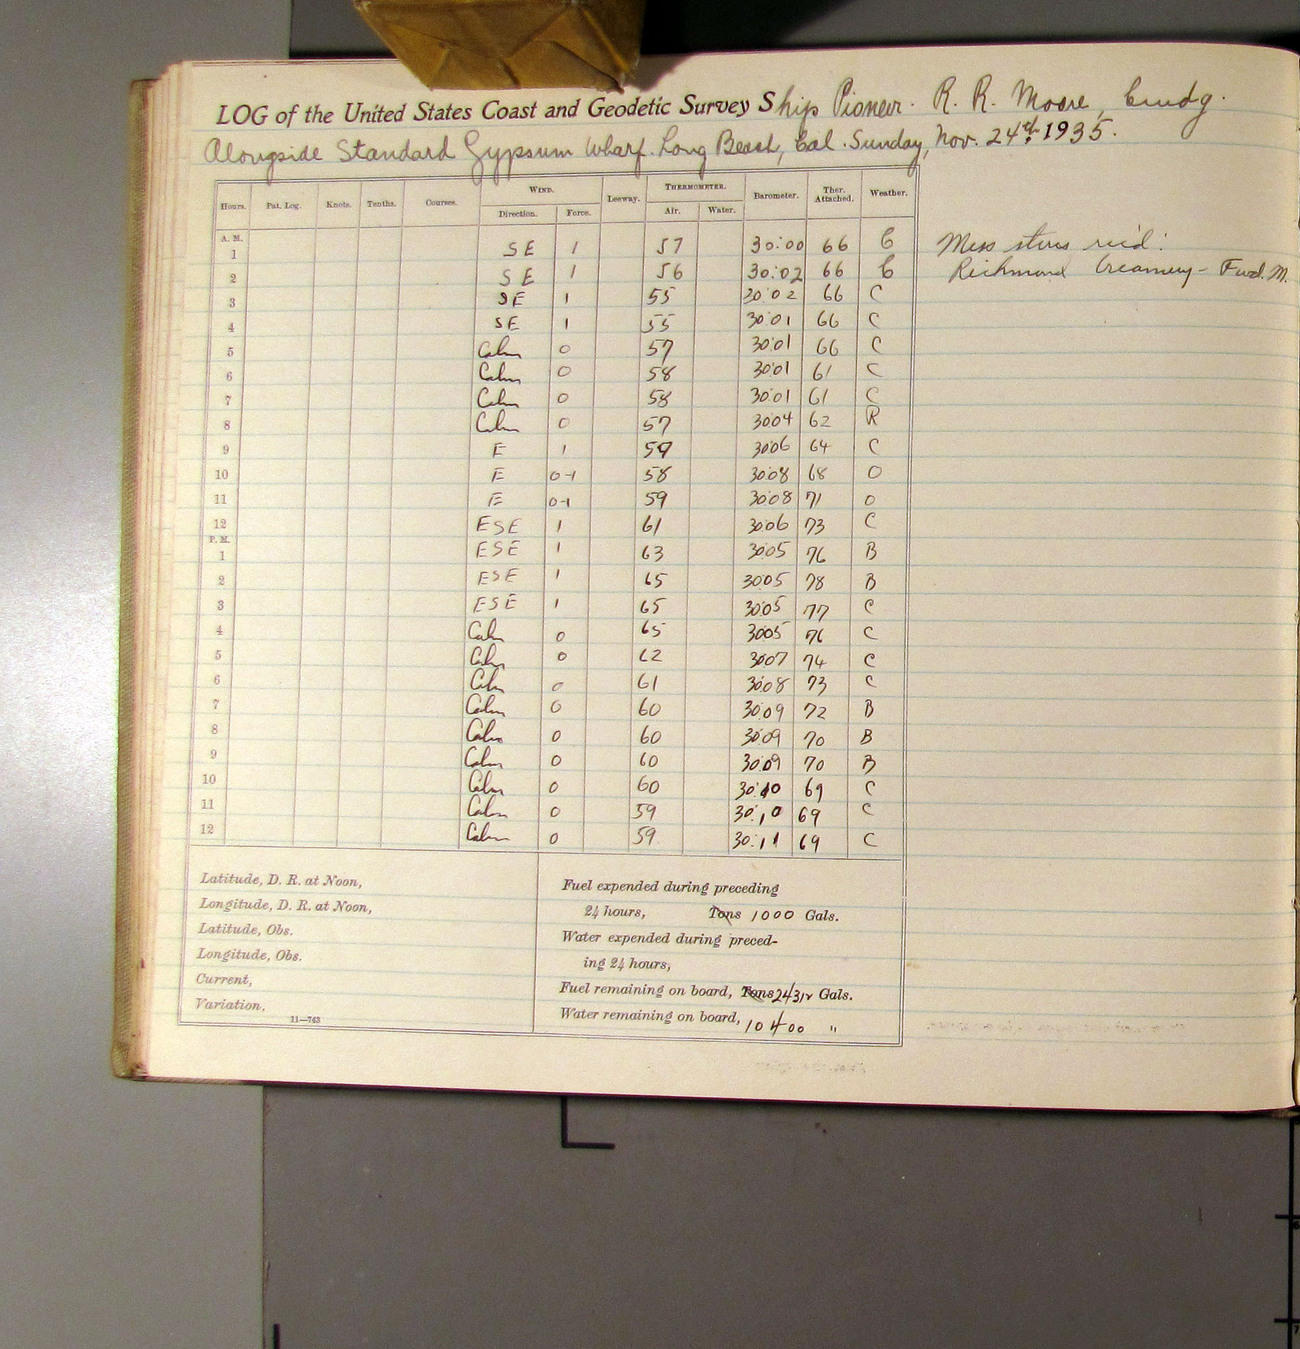 LOG of the United States Coast and Geodetic Survey Ship Pioneer. R. R. Moore, Cmdg.
Alongside Standard Gypsum Wharf. Long Beach, Cal. Sunday, Nov. 24th, 1935.
Hours. Pat. Log. Knots. Tenths. Courses. WIND. Direction. Force. Leeway. THERMOMETER. Air. Water. Barometer. Ther. Attached. Weather.
A. M.
1 SE 1 57 30:00 66 C Mess stores rec'd:
2 SE 1 56 30:02 66 C Richmond Creamery - Fwd. M.
3 SE 1 55 30:02 66 C
4 SE 1 55 30:01 66 C
5 Calm 0 57 30:01 66 C
6 Calm 0 58 30:01 61 C
7 Calm 0 58 30:01 61 C
8 Calm 0 57 30:04 62 R
9 E 1 59 30:06 64 C
10 E 0-1 58 30:08 68 O
11 E 0-1 59 30:08 71 O
12 ESE 1 61 30:06 73 C
P. M.
1 ESE 1 63 30:05 76 B
2 ESE 1 65 30:05 78 B
3 ESE 1 65 30:05 77 C
4 Calm 0 65 30:05 76 C
5 Calm 0 62 30:07 74 C
6 Calm 0 61 30:08 73 C
7 Calm 0 60 30:09 72 B
8 Calm 0 60 30:09 70 B
9 Calm 0 60 30:09 70 B
10 Calm 0 60 30:10 69 C
11 Calm 0 59 30:10 69 C
12 Calm 0 59 30:11 69 C
Latitude, D. R. at Noon,
Longitude, D. R. at Noon,
Latitude, Obs.
Longitude, Obs.
Current,
Variation,
11—743
Fuel expended during preceding
24 hours, Tons 1000 Gals.
Water expended during preced-
ing 24 hours,
Fuel remaining on board, Tons Gals.
Water remaining on board, 10400 "